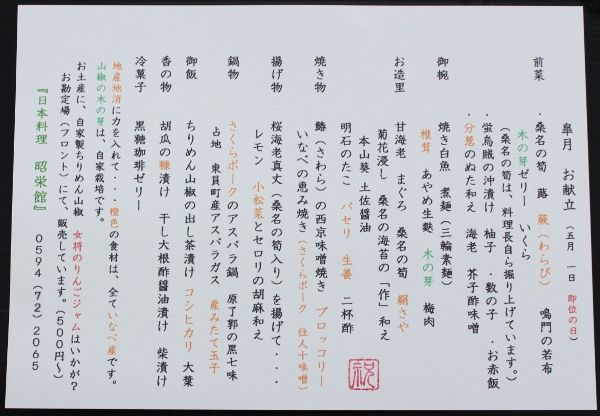 皐月　お献立（五月　一日　即位の日）
前菜　・桑名の筍　蕗　蕨（わらび）　鳴門の若布
木の芽ゼリー　いくら
（桑名の筍は、料理長自ら掘り上げています。）
・蛍烏賊の沖漬け　柚子　・数の子　・お赤飯
・分葱のぬた和え　海老　芥子酢味噌
御椀　焼き白魚　煮麺（三輪素麺）
椎茸　あやめ生麩　木の芽　梅肉
お造里　甘海老　まぐろ　桑名の筍　絹さや
菊花浸し　桑名の海苔の「作」和え
本山葵　土佐醤油
明石のたこ　パセリ　生姜　二杯酢
焼き物　鰆（さわら）の西京味噌焼き　ブロッコリー
いなべの恵み焼き（さくらポーク　住人十味噌）
揚げ物　桜海老真丈（桑名の筍入り）を揚げて・・・
レモン　小松菜とセロリの胡麻和え
鍋物　さくらポークのアスパラ鍋　原了郭の黒七味
占地　東員町産アスパラガス　産みたて玉子
御飯　ちりめん山椒の出し茶漬け　コシヒカリ　大葉
香の物　胡瓜の糠漬け　干し大根酢醤油漬け　柴漬け
冷菓子　黒糖珈琲ゼリー
地産地消に力を入れて・・・橙色の食材は、全ていなべ産です。
山椒の木の芽は、自家栽培です。
お土産に、自家製ちりめん山椒　女将のりんごジャムはいかが？
お勘定場（フロント）にて、販売しています。（５００円～）
『日本料理　昭栄館』　０５９４（７２）２０６５
祝